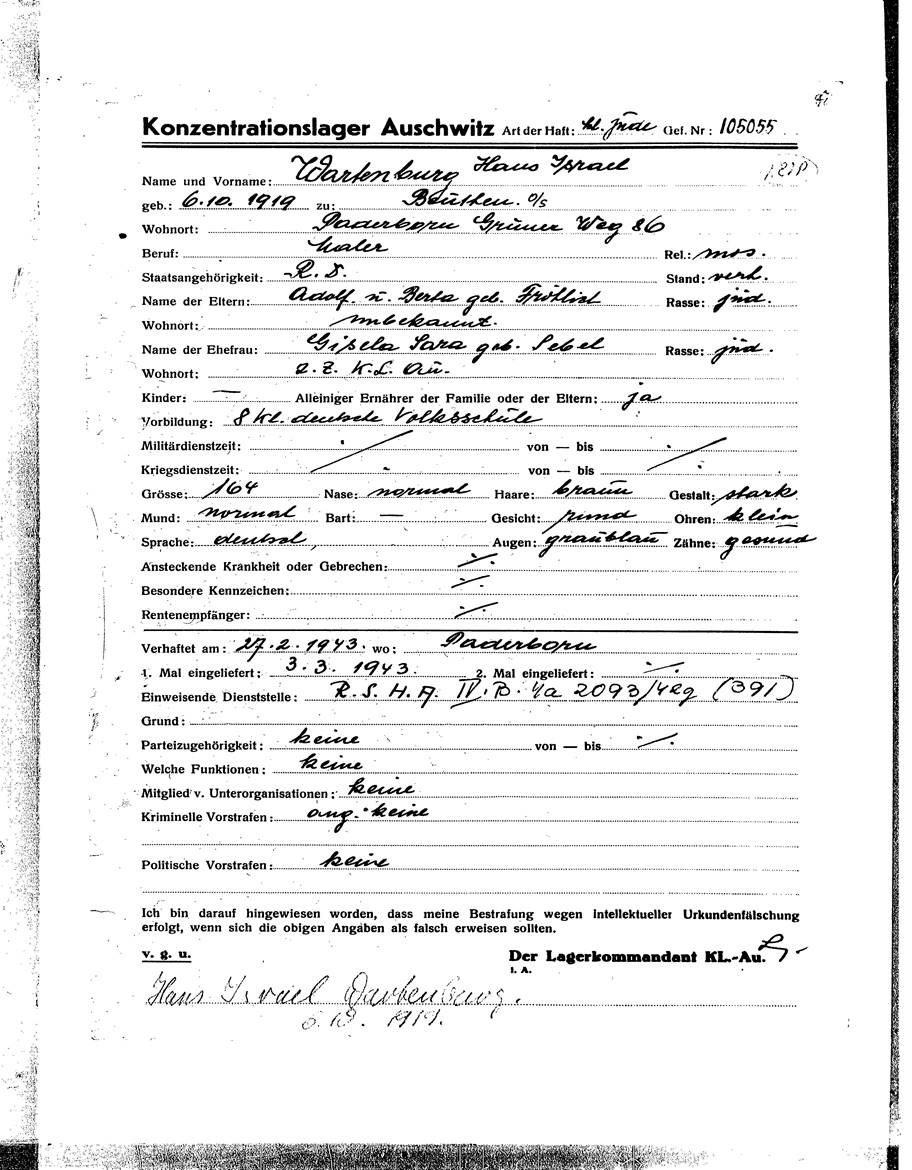 Konzentrationslager Auschwitz Art der Haft: Jude Gef. Nr: 105055
Name und Vorname: Wartenburg Hans Israel
geb.: 6.10.1919 zu: Beuthen. O/S
Wohnort: Paderborn Grüner Weg 86
Beruf: Maler Rel.: mos.
Staatsangehörigkeit: R. D. Stand: verh.
Name der Eltern: Adolf u. Berta geb. Rasse: jüd.
Wohnort: unbekannt.
Name der Ehefrau: Gisela Sara geb. Rasse: jüd.
Wohnort: z. Z. K.L. Au.
Kinder: — Alleiniger Ernährer der Familie oder der Eltern: ja
Vorbildung: 8 Kl. deutsche Volksschule
Militärdienstzeit: von — bis
Kriegsdienstzeit: von — bis
Grösse: 164 Nase: normal Haare: braun Gestalt: stark
Mund: normal Bart: — Gesicht: rund Ohren: klein
Sprache: deutsch, Augen: graublau Zähne: gesund
Ansteckende Krankheit oder Gebrechen: ./.
Besondere Kennzeichen: ./.
Rentenempfänger: ./.
Verhaftet am: 27.2.1943. wo: Paderborn
1. Mal eingeliefert: 3.3.1943. 2. Mal eingeliefert: ./.
Einweisende Dienststelle: R.S.H.A. IV. B. 4a 2093/42g (391)
Grund:
Parteizugehörigkeit: keine von — bis ./.
Welche Funktionen: keine
Mitglied v. Unterorganisationen: keine
Kriminelle Vorstrafen: ang. keine
Politische Vorstrafen: keine
Ich bin darauf hingewiesen worden, dass meine Bestrafung wegen intellektueller Urkundenfälschung
erfolgt, wenn sich die obigen Angaben als falsch erweisen sollten.
v. g. u. Der Lagerkommandant KL.-Au.
i. A.
Hans Israel Wartenburg.
6.10.1919.